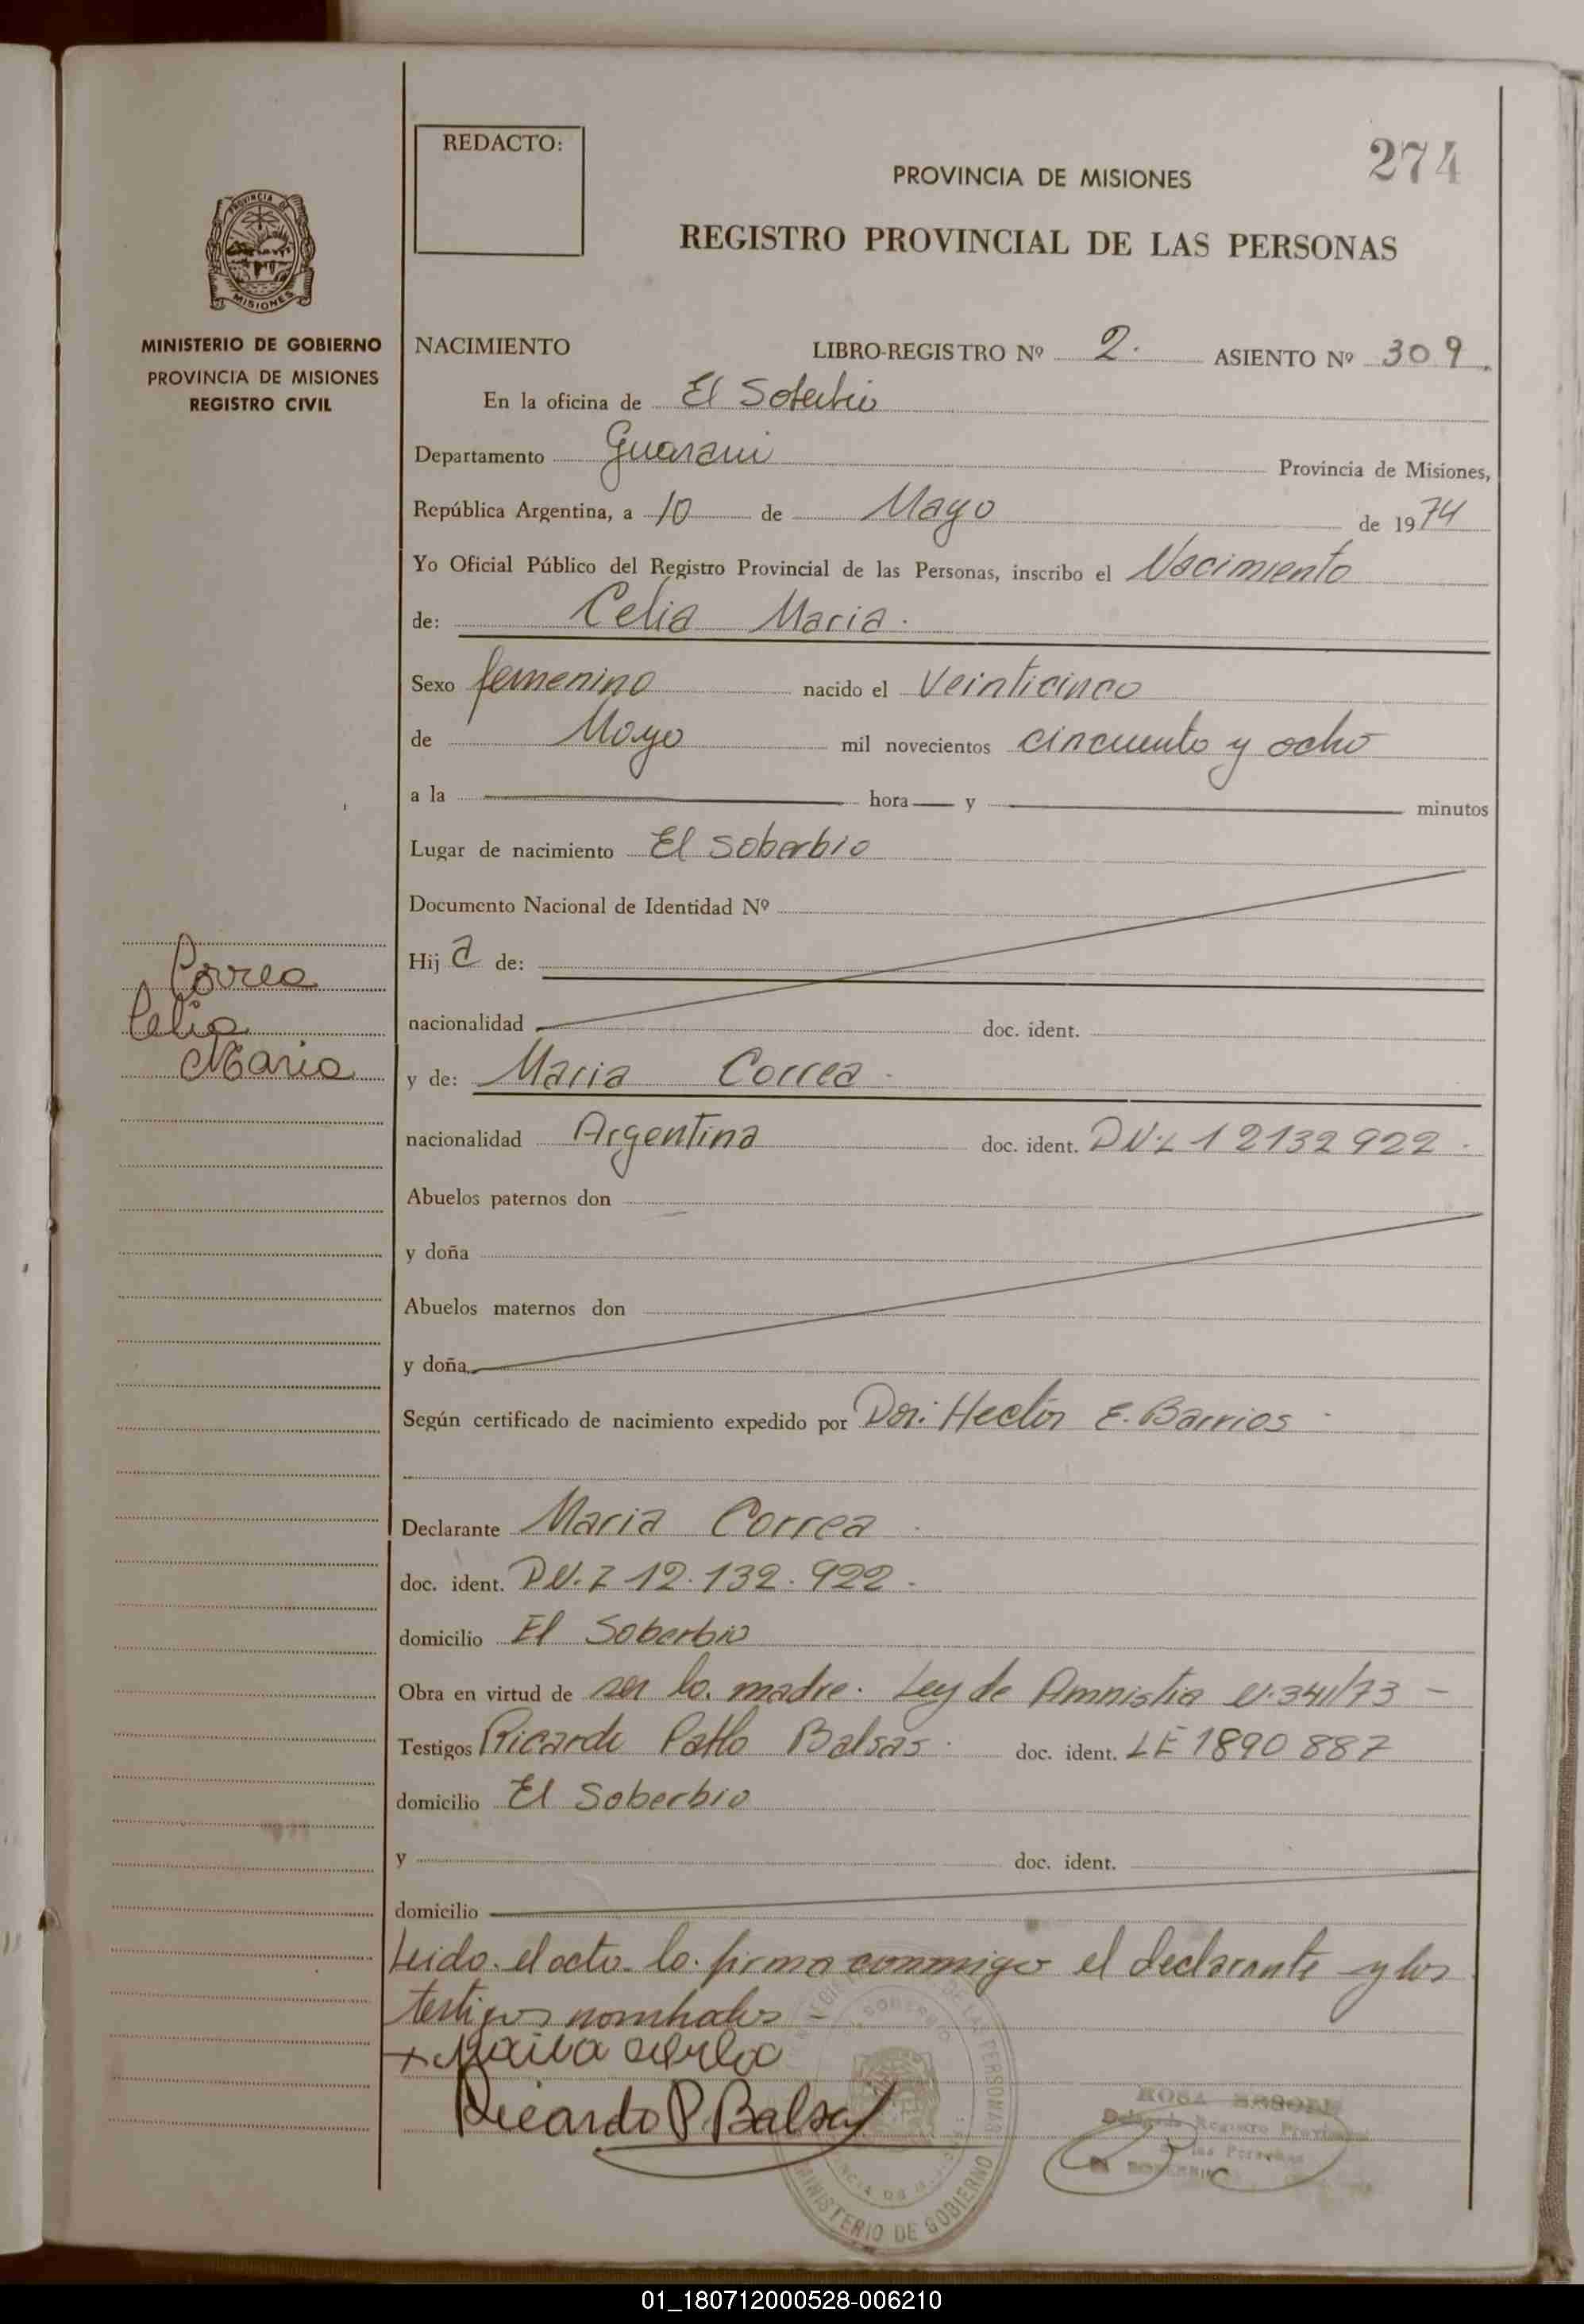 REDACTO:
274
PROVINCIA DE MISIONES
REGISTRO PROVINCIAL DE LAS PERSONAS
PROVINCIA DE
MISIONES
MINISTERIO DE GOBIERNO
PROVINCIA DE MISIONES
REGISTRO CIVIL
NACIMIENTO LIBRO-REGISTRO Nº 2. ASIENTO Nº 309
En la oficina de El Soberbio
Departamento Guarani Provincia de Misiones,
República Argentina, a 10 de Mayo de 1974
Yo Oficial Público del Registro Provincial de las Personas, inscribo el Nacimiento
de: Celia Maria.
Sexo femenino nacido el Veinticinco
de Mayo mil novecientos cincuenta y ocho
a la hora y minutos
Lugar de nacimiento El Soberbio
Documento Nacional de Identidad Nº
Hij a de:
nacionalidad doc. ident.
Correa
Celia
Maria
y de: Maria Correa
nacionalidad Argentina doc. ident. DN.I 12132922
Abuelos paternos don
y doña
Abuelos maternos don
y doña
Según certificado de nacimiento expedido por Dor: Hector E. Barrios
Declarante Maria Correa
doc. ident. DN.I 12.132.922
domicilio El Soberbio
Obra en virtud de ser la madre. Ley de Amnistia N.341/73 -
Testigos Ricardo Pablo Balsas doc. ident. LE 1890887
domicilio El Soberbio
y doc. ident.
domicilio
Leido el acto lo firma conmigo el declarante y los
testigos nombrados -
Ricardo P. Balsas
SOBERBIO
MINISTERIO DE GOBIERNO
ROSA
Delegada Registro Provincial
de las Personas
EL SOBERBIO
01_180712000528-006210